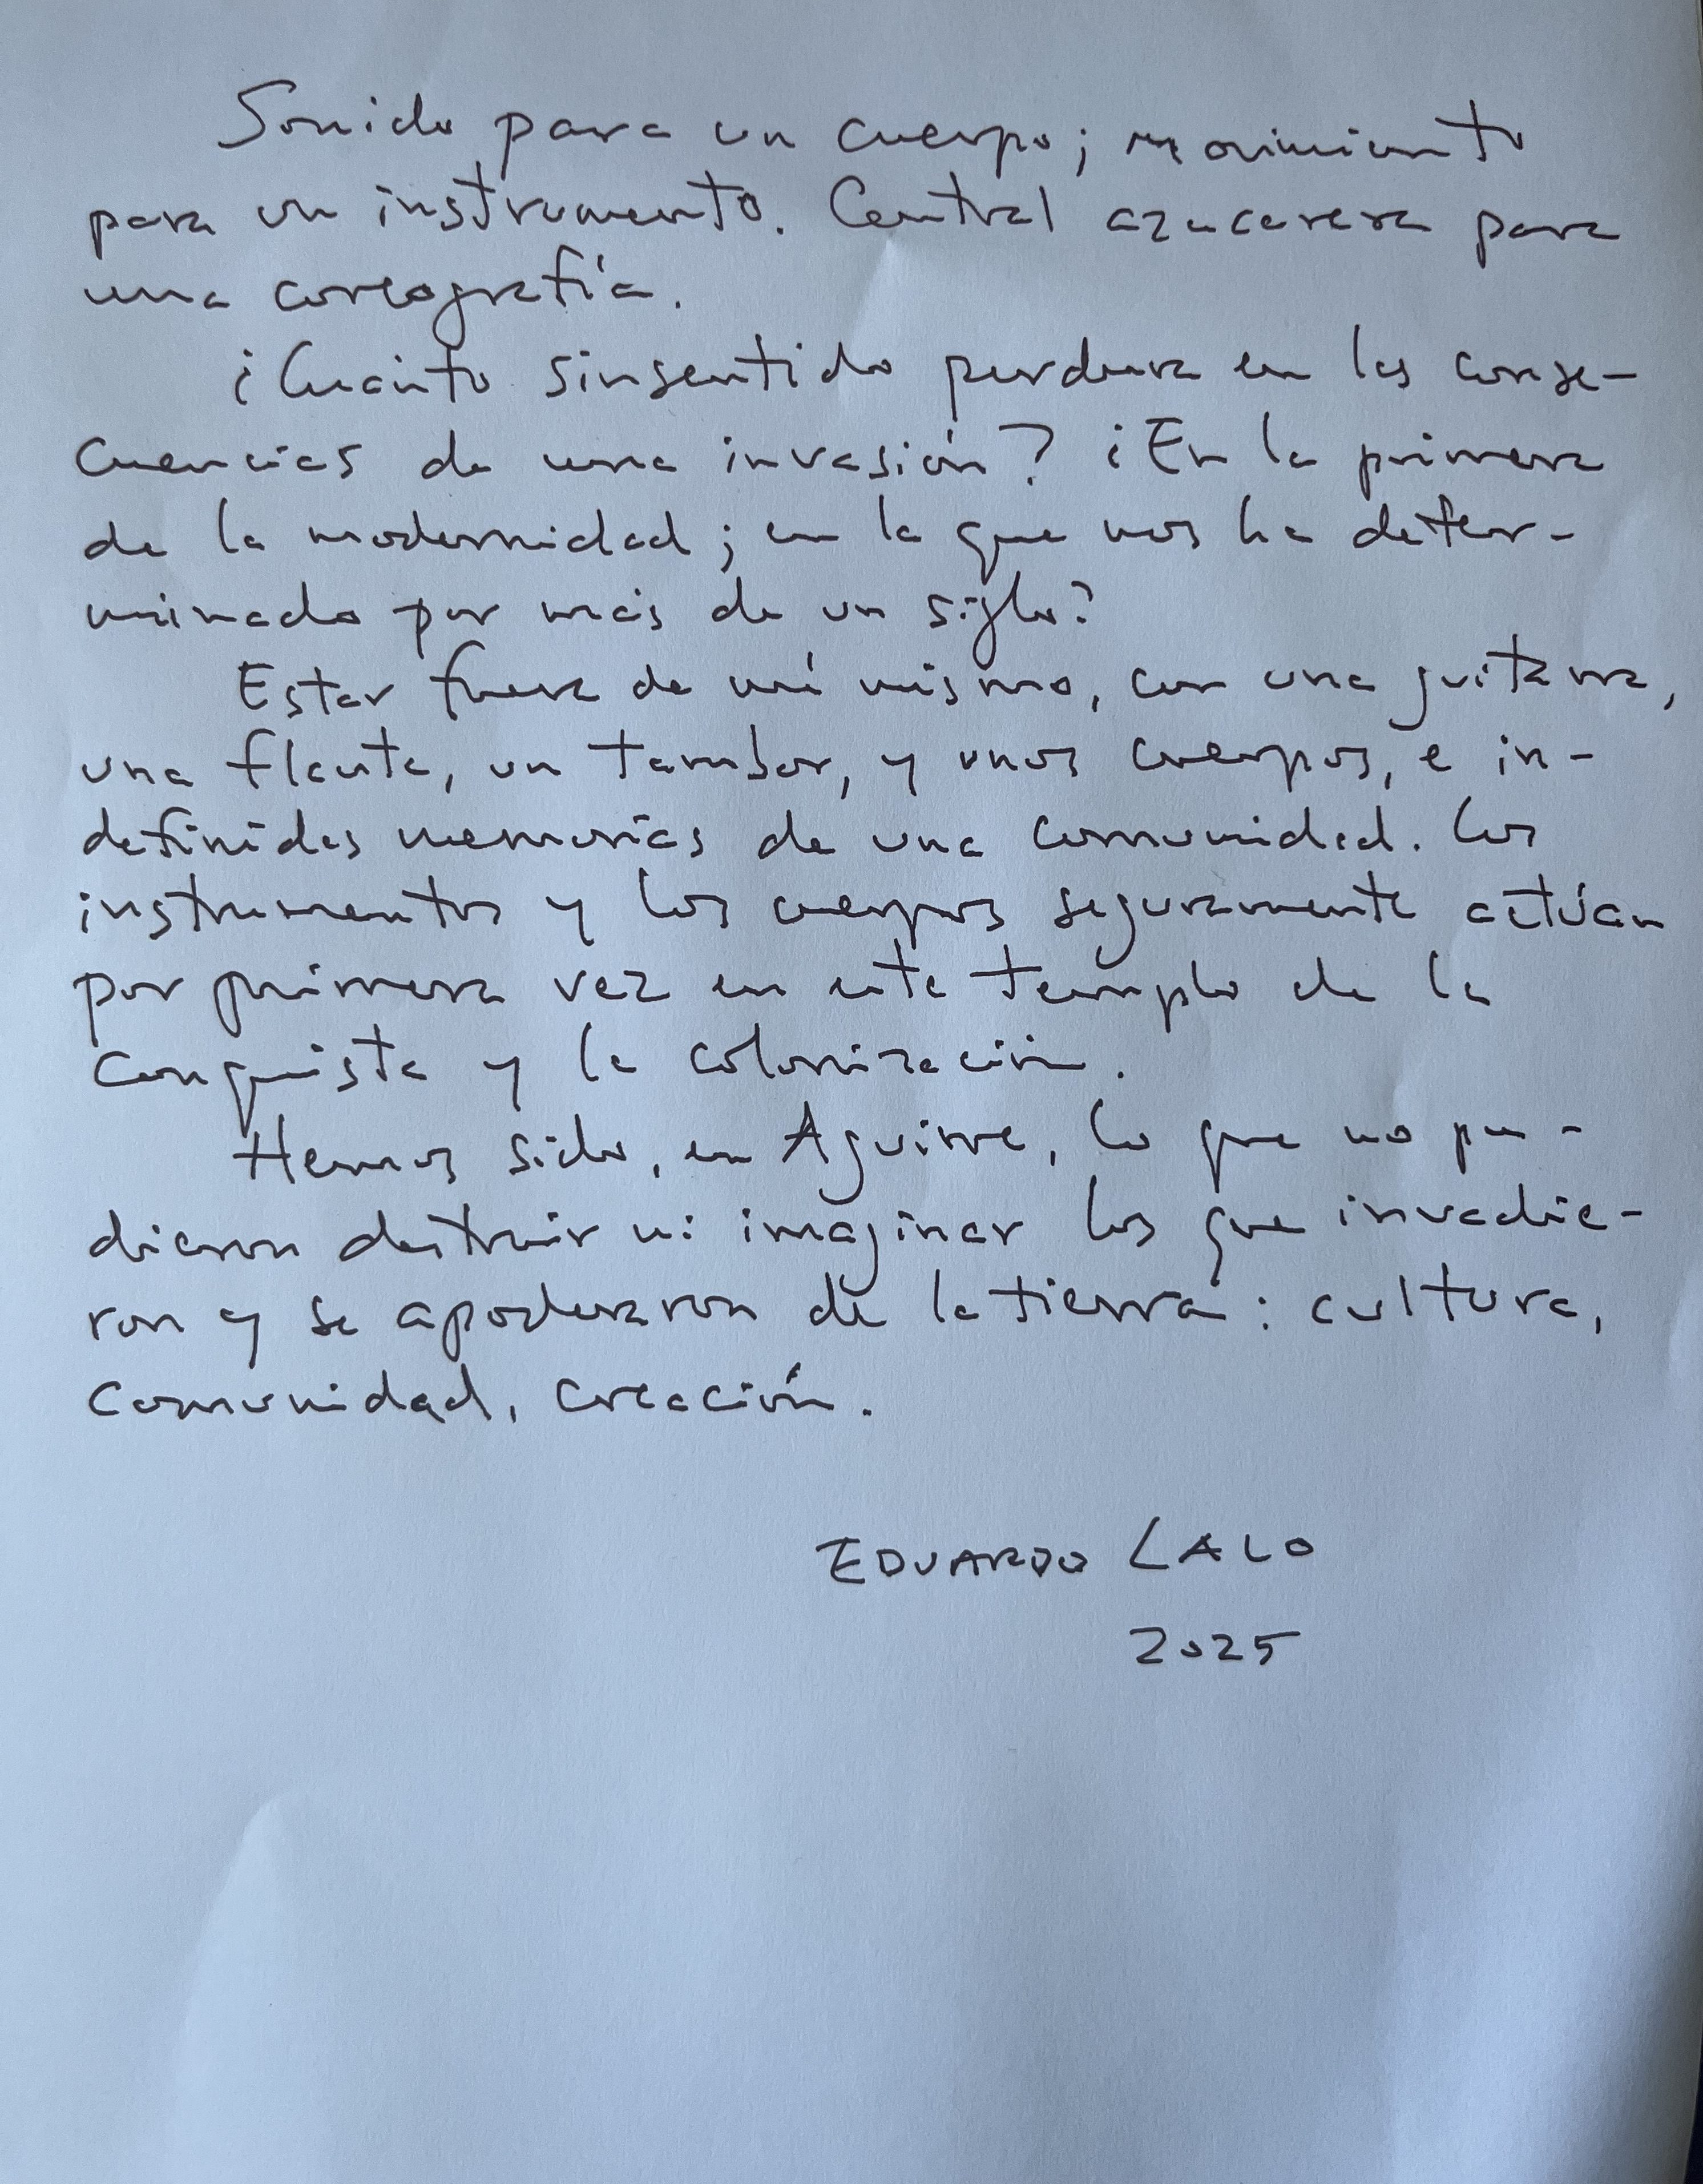 Sonido para un cuerpo; movimiento
para un instrumento. Central azucarera para
una coreografía.
¿Cuánto sinsentido perdura en las conse-
cuencias de una invasión? ¿En la primera
de la modernidad; en la que nos ha deter-
minado por más de un siglo?
Estar fuera de mí mismo, con una guitarra,
una flauta, un tambor, y unos cuerpos, e in-
definidas memorias de una comunidad. Los
instrumentos y los cuerpos seguramente actúan
por primera vez en este templo de la
conquista y la colonización.
Hemos sido, en Aguirre, lo que no pu-
dieron destruir ni imaginar los que invadie-
ron y se apoderaron de la tierra: cultura,
comunidad, creación.
EDUARDO LALO
2025